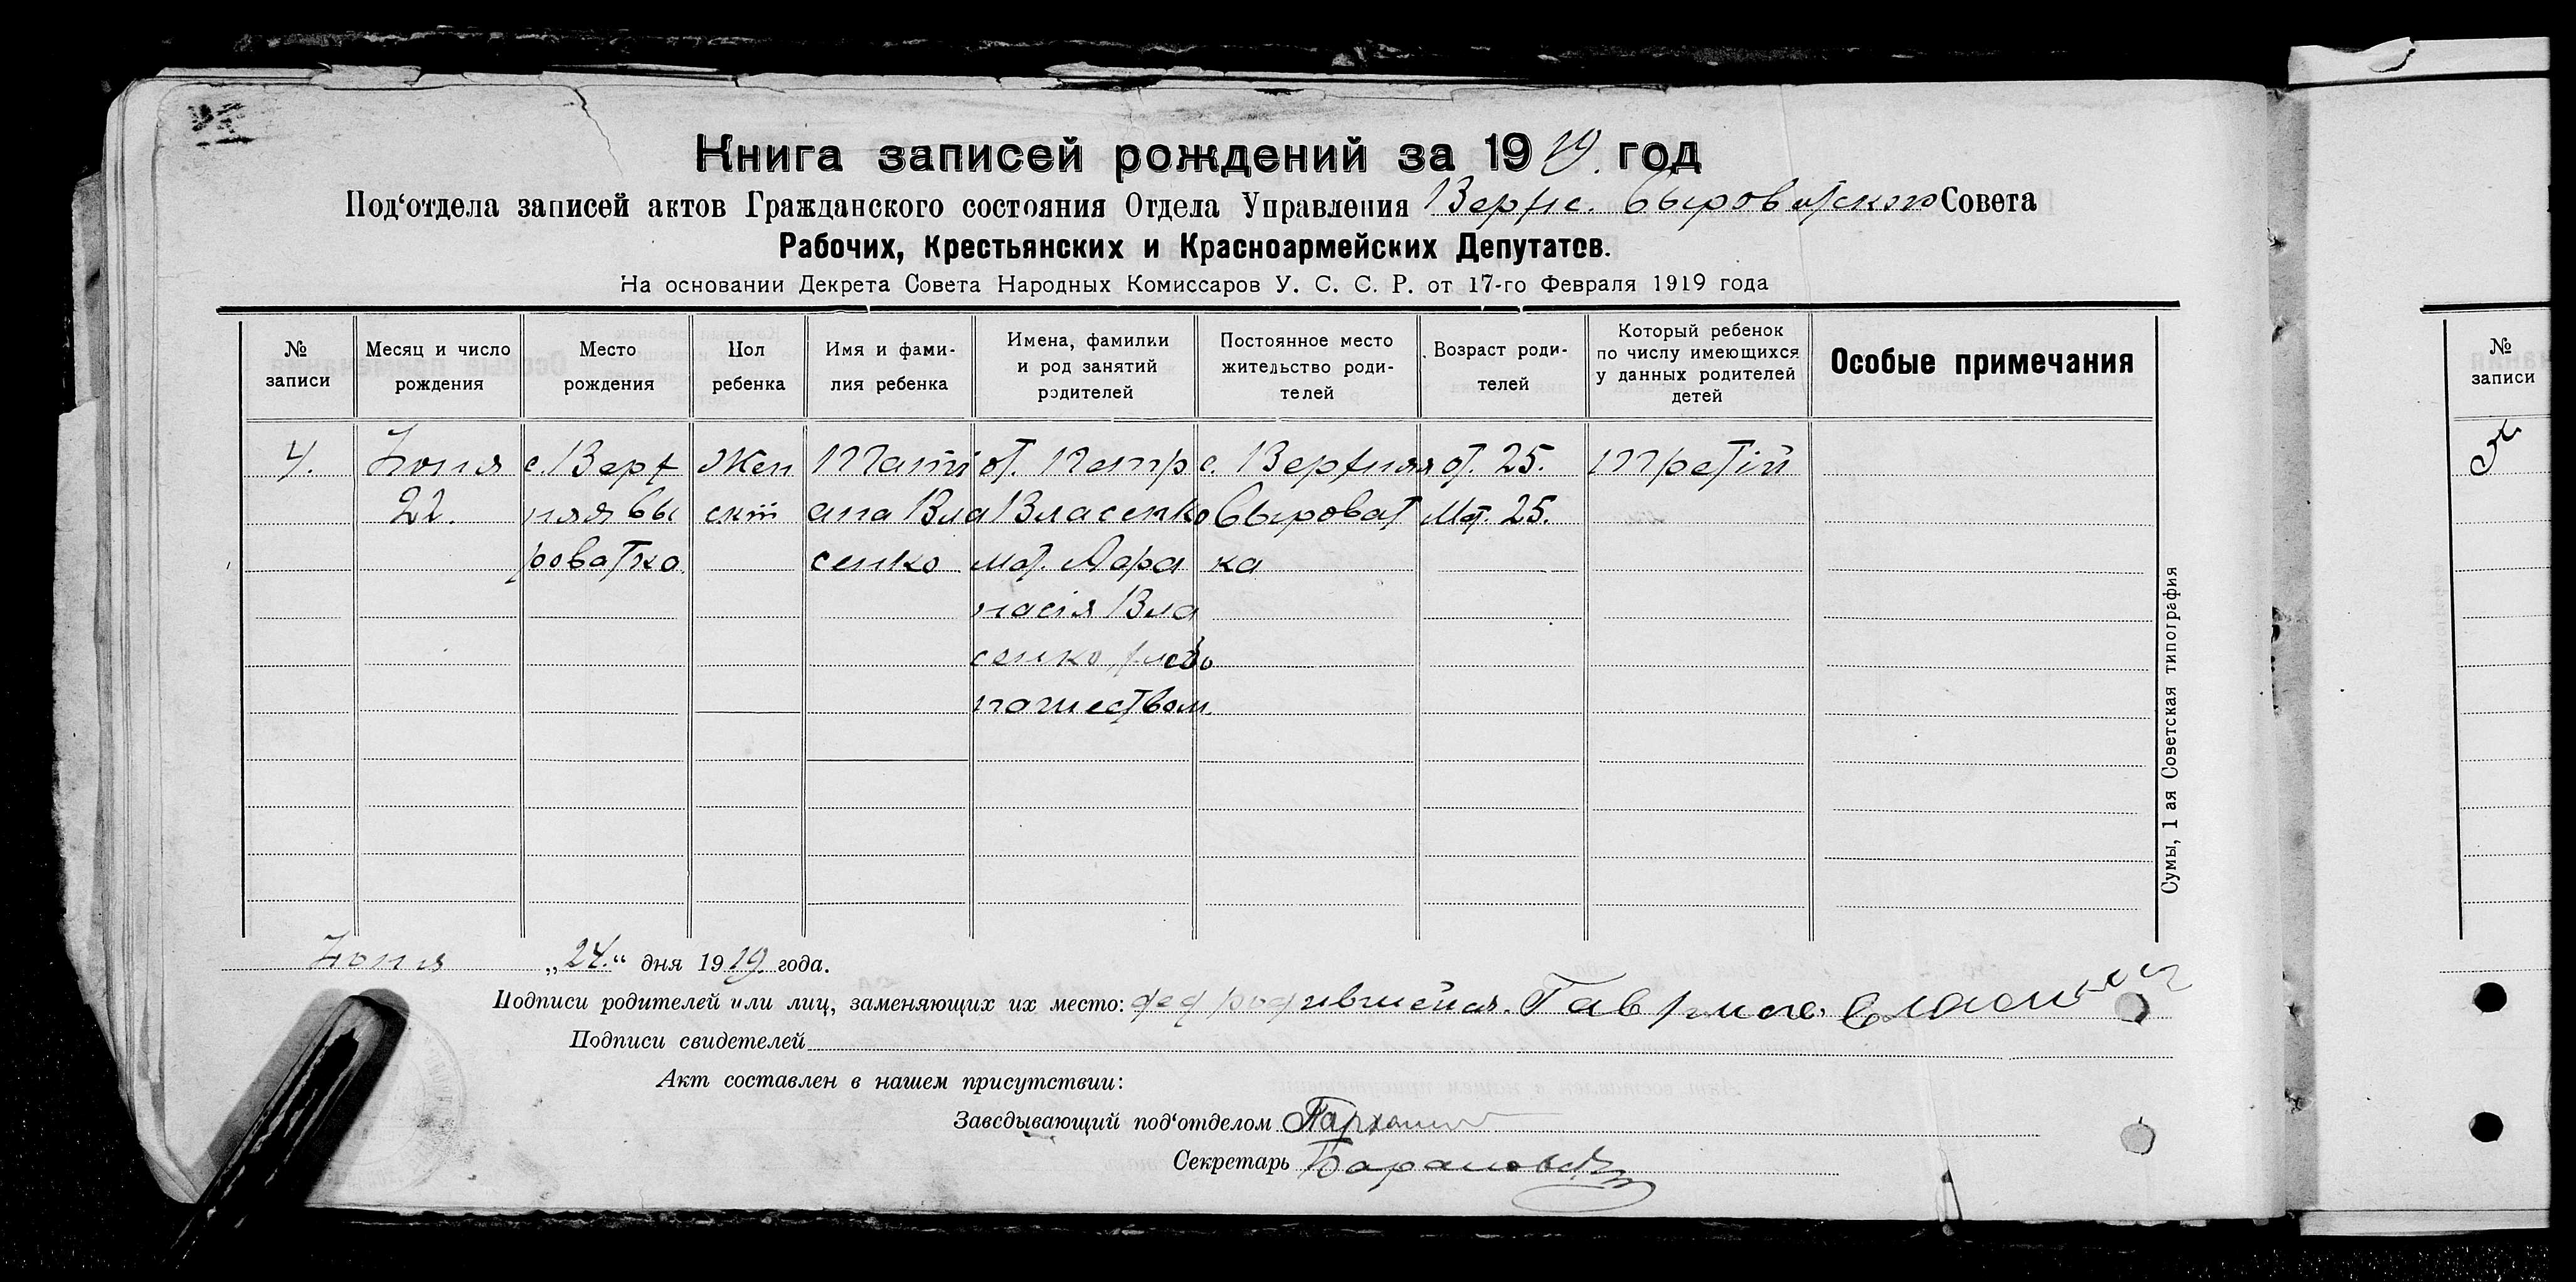 Книга записей рождений за 1919. год
Под‘отдела записей актов Гражданского состояния Отдела Управления Верхне. Сыроватского Совета
Рабочих, Крестьянских и Красноармейских Депутатов.
На основании Декрета Совета Народных Комиссаров У. С. С. Р. от 17-го Февраля 1919 года
№ записи
Месяц и число рождения
Место рождения
Пол ребенка
Имя и фами-
лия ребенка
Имена, фамилии
и род занятий
родителей
Постоянное место
жительство роди-
телей
Возраст роди-
телей
Который ребенок
по числу имеющихся
у данных родителей
детей
Особые примечания
№ записи
4.
Іюня
22.
с. Верх
няя Сы
роватка
Жен
скій
Таті
ана Вла
сенко
от. Петр
Власенко
мат. Афа
насія Вла
сенко, хлебо
пашеством.
с. Верхняя
Сыроват
ка
от. 25.
Мат. 25.
Третій
Сумы, 1 ая Советская типография
Іюня „24.“ дня 1919. года.
Подписи родителей или лиц, заменяющих их место: дед Гаврило
Подписи свидетелей
Акт составлен в нашем присутствии:
Заведывающий под‘отделом
Секретарь